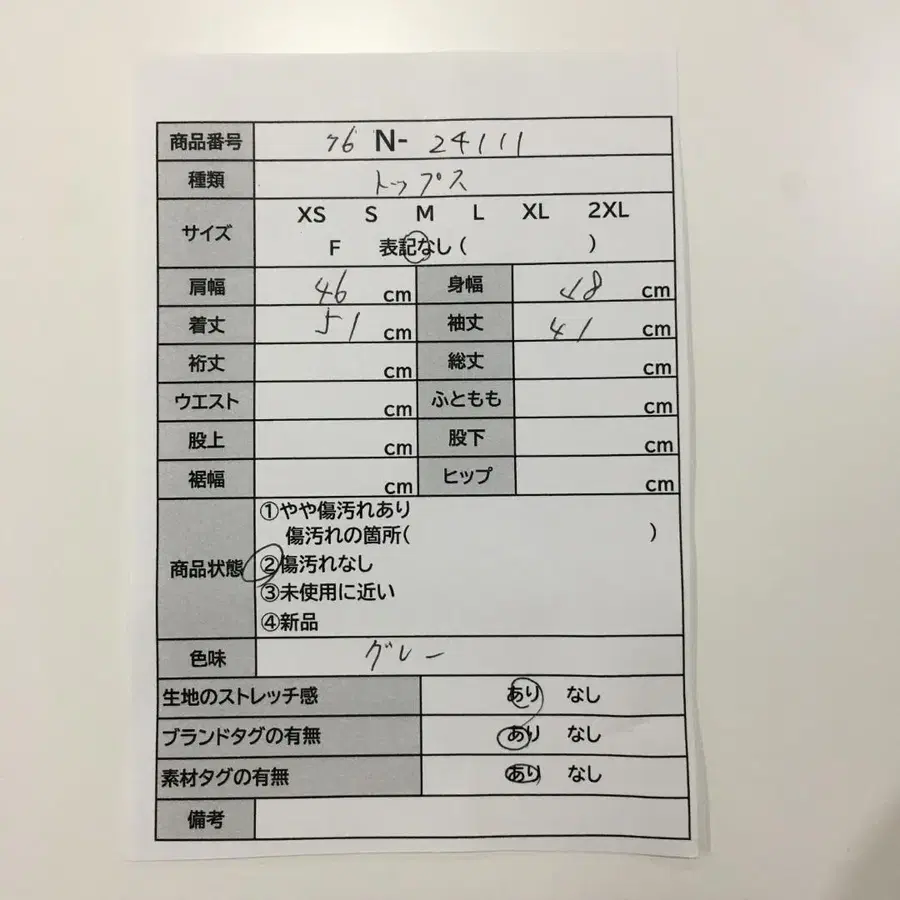 商品番号 76 N- 24111
種類 トップス
サイズ XS S M L XL 2XL
F 表記なし ( )
肩幅 46 cm 身幅 48 cm
着丈 51 cm 袖丈 41 cm
裄丈 cm 総丈 cm
ウエスト cm ふともも cm
股上 cm 股下 cm
裾幅 cm ヒップ cm
商品状態 ①やや傷汚れあり
傷汚れの箇所( )
②傷汚れなし
③未使用に近い
④新品
色味 グレー
生地のストレッチ感 あり なし
ブランドタグの有無 あり なし
素材タグの有無 あり なし
備考